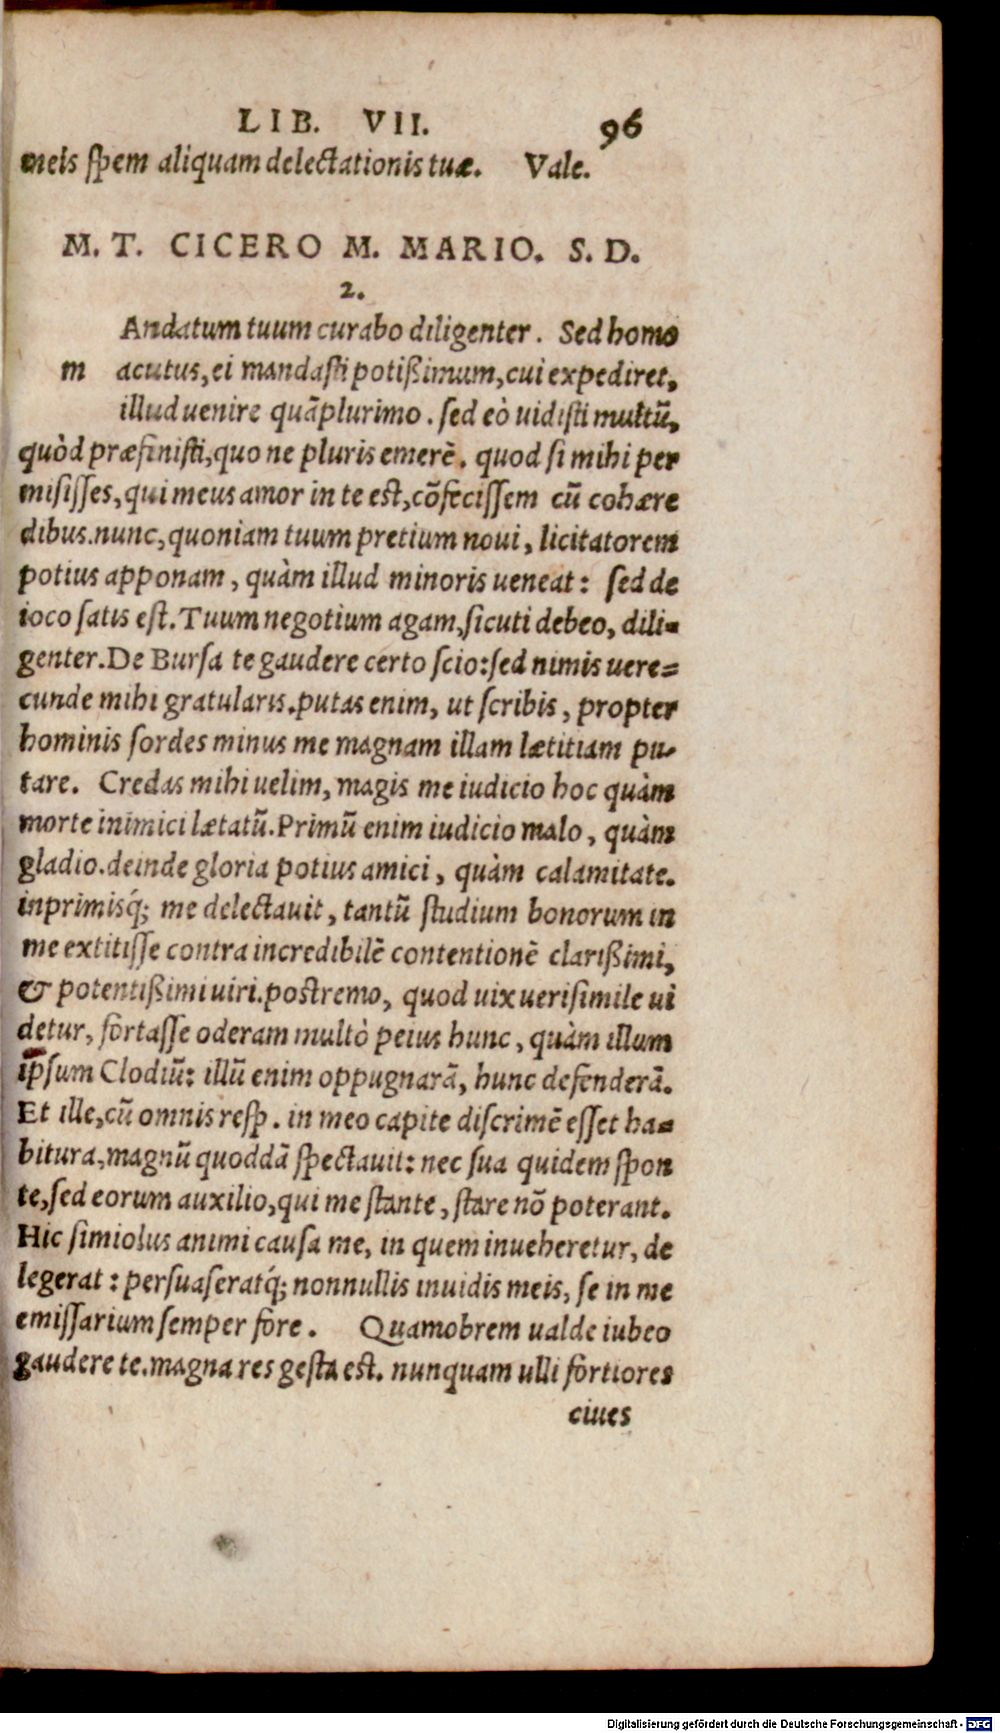 LIB. VII. 96
meis spem aliquam delectationis tuæ. Vale.
M. T. CICERO M. MARIO. S. D.
2.
Andatum tuum curabo diligenter. Sed homo
m acutus, ei mandasti potißimum, cui expediret,
illud uenire quãplurimo. sed eò uidisti multũ,
quòd præfinisti, quo ne pluris emerẽ. quod si mihi per
misisses, qui meus amor in te est, cõfecissem cũ cohære
dibus. nunc, quoniam tuum pretium noui, licitatorem
potius apponam, quàm illud minoris ueneat: sed de
ioco satis est. Tuum negotium agam, sicuti debeo, dili-
genter. De Bursa te gaudere certo scio: sed nimis uere=
cunde mihi gratularis. putas enim, ut scribis, propter
hominis sordes minus me magnam illam lætitiam pu-
tare. Credas mihi uelim, magis me iudicio hoc quàm
morte inimici lætatũ. Primũ enim iudicio malo, quàm
gladio. deinde gloria potius amici, quàm calamitate.
inprimisq́; me delectauit, tantũ studium bonorum in
me extitisse contra incredibilẽ contentionẽ clarißimi,
& potentißimi uiri. postremo, quod uix uerisimile ui
detur, fortasse oderam multò peius hunc, quàm illum
ipsum Clodiũ: illũ enim oppugnarã, hunc defenderã.
Et ille, cũ omnis resp. in meo capite discrimẽ esset ha-
bitura, magnũ quoddã spectauit: nec sua quidem spon
te, sed eorum auxilio, qui me stante, stare nõ poterant.
Hic simiolus animi causa me, in quem inueheretur, de
legerat: persuaseratq́; nonnullis inuidis meis, se in me
emissarium semper fore. Quamobrem ualde iubeo
gaudere te. magna res gesta est. nunquam ulli fortiores
ciues
Digitalisierung gefördert durch die Deutsche Forschungsgemeinschaft - DFG